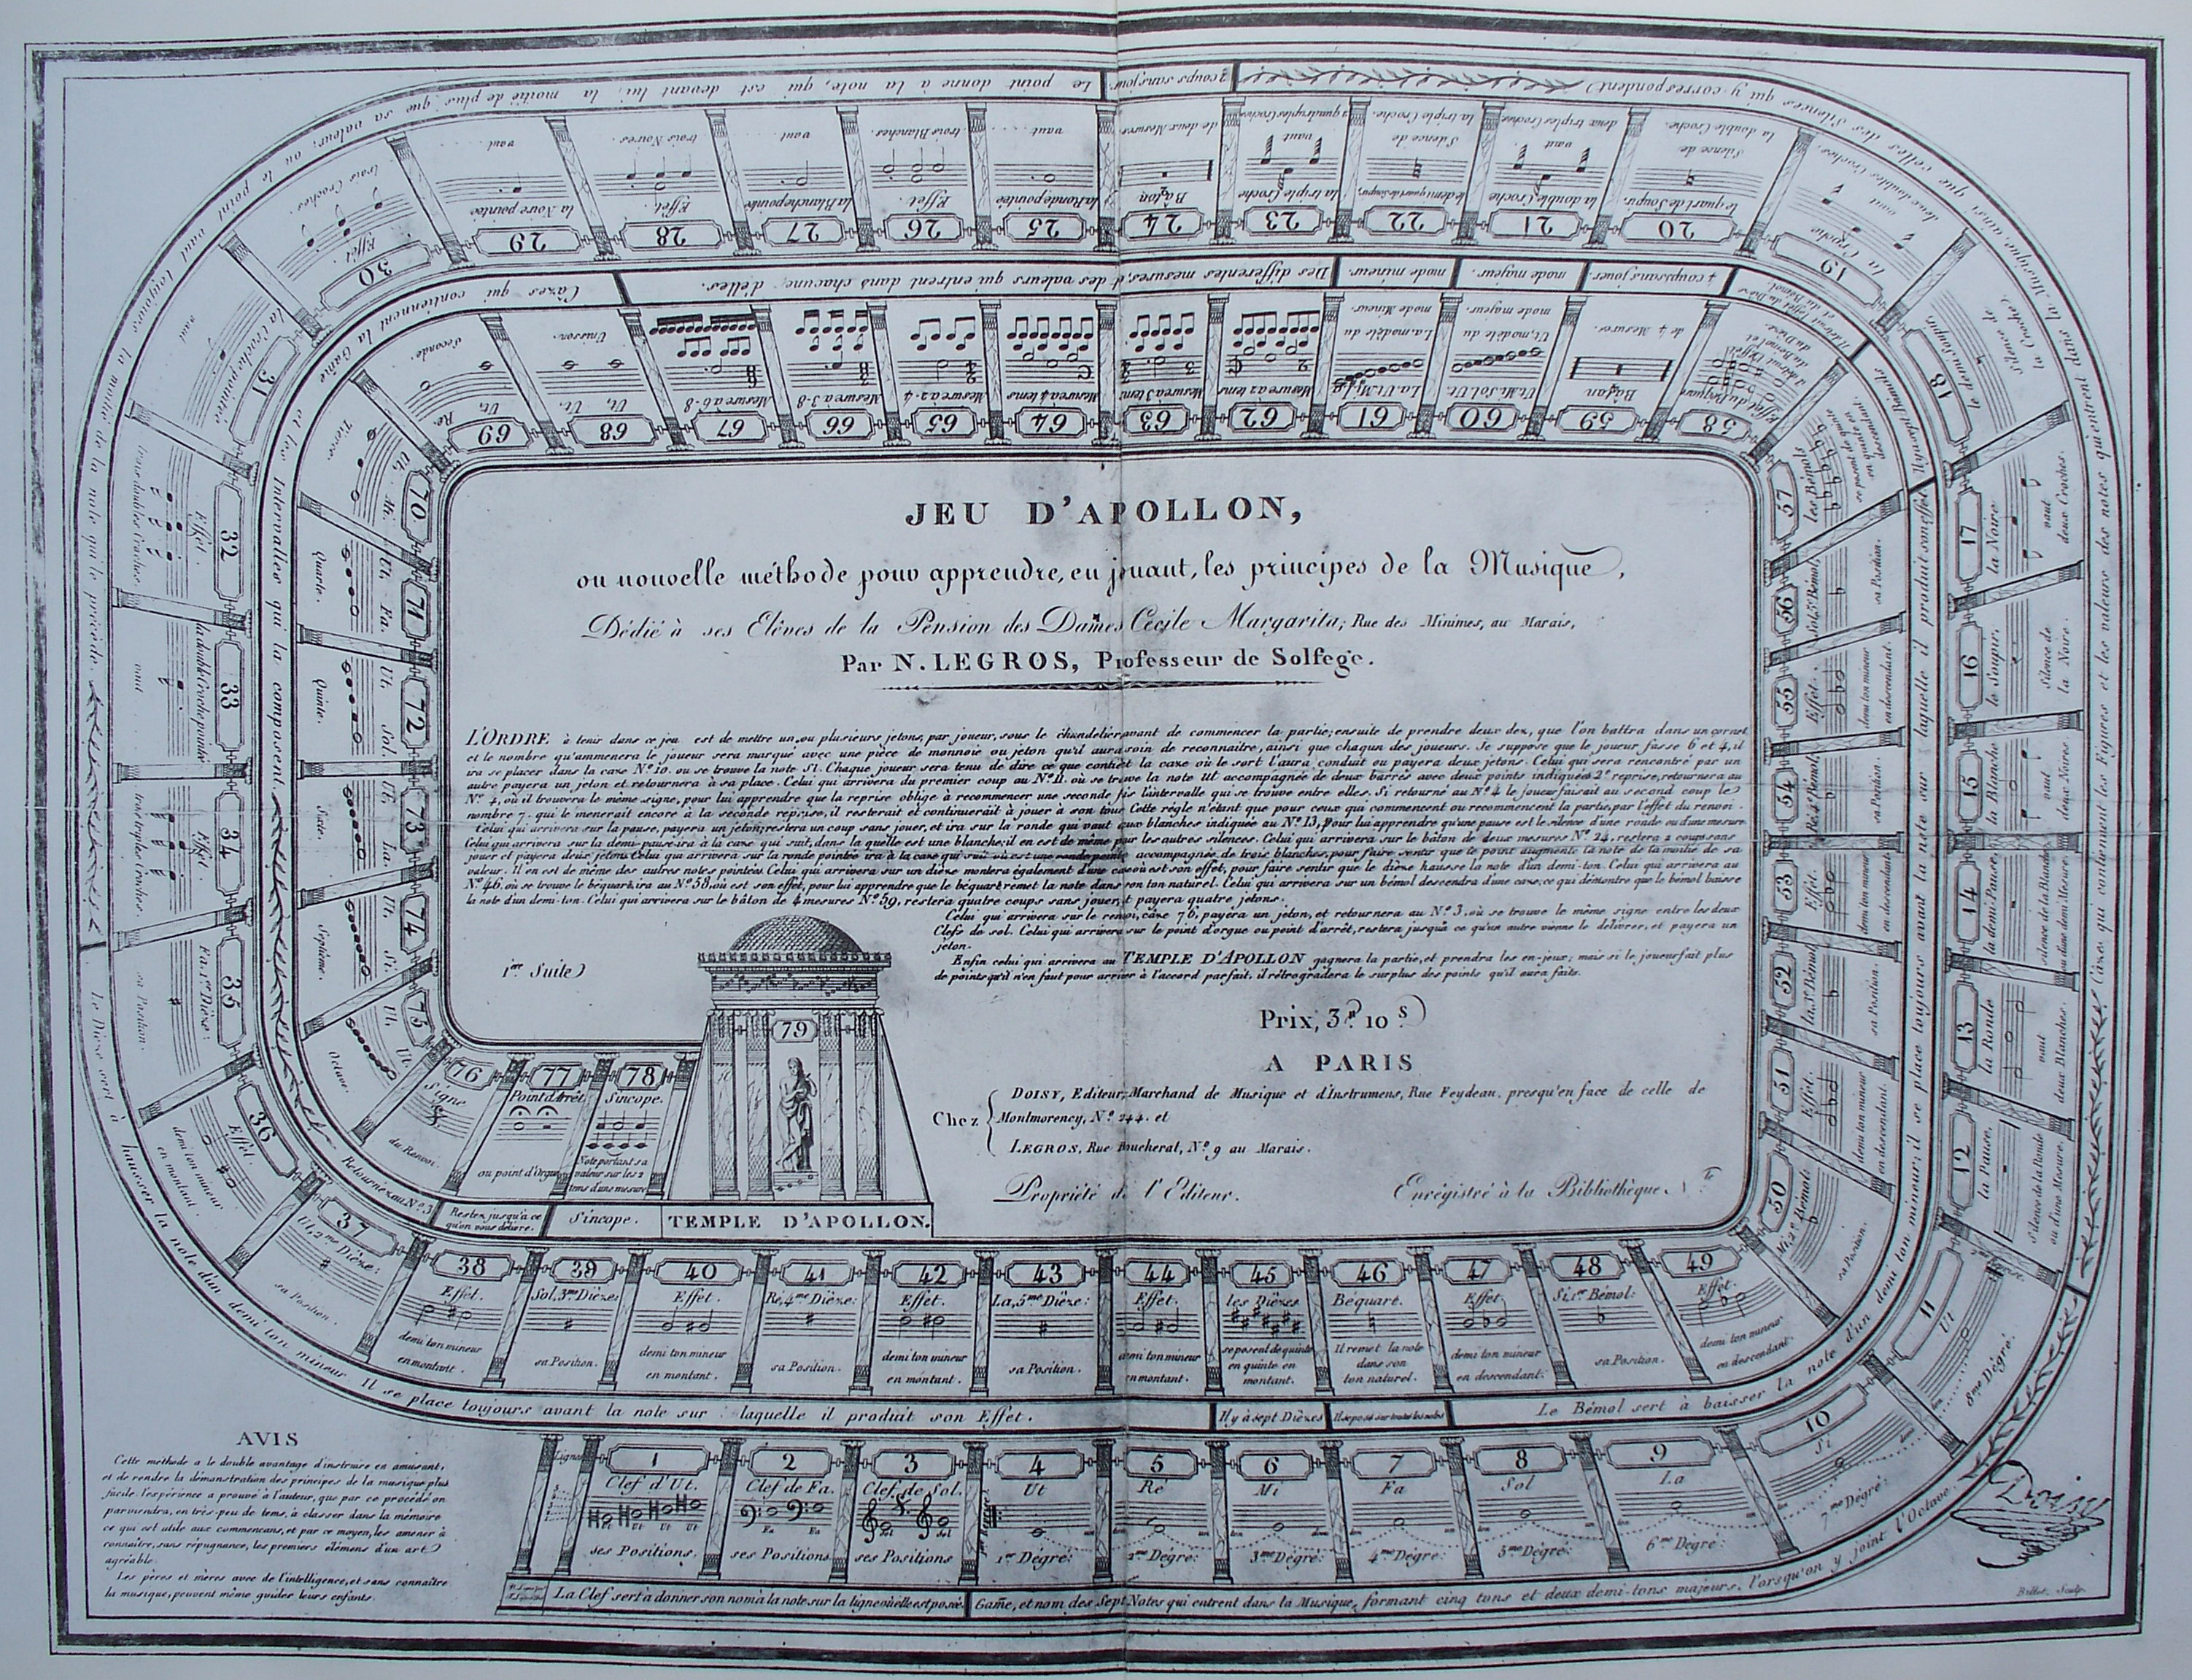 JEU D'APOLLON,
ou nouvelle méthode pour apprendre, en jouant, les principes de la Musique,
Dédié à ses Elèves de la Pension des Dames Cécile Margarita; Rue des Minimes, au Marais,
Par N. LEGROS, Professeur de Solfege.
L'ORDRE à tenir dans ce jeu est de mettre un, ou plusieurs jetons, par joueur, sous le chandelier avant de commencer la partie; ensuite de prendre deux dez, que l'on battra dans un cornet
et le nombre qu'ammenera le joueur sera marqué avec une pièce de monnoie ou jeton qu'il aura soin de reconnaitre, ainsi que chaqun des joueurs. Je suppose que le joueur fasse 6 et 4, il
ira se placer dans la caze No. 10. ou se trouve la note SI. Chaque joueur sera tenu de dire ce que contient la caze où le sort l'aura conduit ou payera deux jetons. Celui qui sera rencontré par un
autre payera un jeton et retournera à sa place. Celui qui arrivera du premier coup au No. 11. où se trouve la note Ut accompagnée de deux barrés avec deux points indiquées 2e reprise, retournera au
No. 4, où il trouvera le même signe, pour lui apprendre que la reprise oblige à recommencer une seconde fois l'intervalle qui se trouve entre elles. Si retourné au No. 4 le joueur faisait au second coup le
nombre 7. qui le menerait encore à la seconde reprise, il resterait et continuerait à jouer à son tour. Cette règle n'étant que pour ceux qui commencent ou recommencent la partie, par l'effet du renvoi.
Celui qui arrivera sur la pause, payera un jeton; restera un coup sans jouer, et ira sur la ronde qui vaut deux blanches indiquée au No. 13, pour lui apprendre qu'une pause est le silence d'une ronde ou d'une mesure.
Celui qui arrivera sur la demi-pause ira à la caze qui suit, dans la quelle est une blanche; il en est de même pour les autres silences. Celui qui arrivera sur le bâton de deux mesures No. 24, restera 2 coups sans
jouer et payera deux jetons. Celui qui arrivera sur la ronde pointée ira à la caze qui suit où est une ronde pointée accompagnée de trois blanches, pour faire sentir que le point augmente la note de la moitié de sa
valeur. Il en est de même des autres notes pointées. Celui qui arrivera sur un dièze montera également d'une caze où est son effet, pour faire sentir que le dièze hausse la note d'un demi-ton. Celui qui arrivera au
No. 46. où se trouve le béquart, ira au No. 58. où est son effet, pour lui apprendre que le béquart remet la note dans son ton naturel. Celui qui arrivera sur un bémol descendra d'une caze; ce qui démontre que le bémol baisse
la note d'un demi-ton. Celui qui arrivera sur le bâton de 4 mesures No. 59, restera quatre coups sans jouer, et payera quatre jetons.
Celui qui arrivera sur le renvoi, caze 76, payera un jeton, et retournera au No. 3. où se trouve le même signe entre les deux
Clefs de sol. Celui qui arrivera sur le point d'orgue ou point d'arrêt, restera jusqu'à ce qu'un autre vienne le délivrer, et payera un
jeton.
Enfin celui qui arrivera au TEMPLE D'APOLLON gagnera la partie, et prendra les en-jeux; mais si le joueur fait plus
de points qu'il n'en faut pour arriver à l'accord parfait, il rétrogradera le surplus des points qu'il aura faits.
1ere Suite
Prix, 3 10 s.
A PARIS
Chez
DOISY, Editeur, Marchand de Musique et d'Instrumens, Rue Feydeau, presqu'en face de celle de
Montmorency, No. 244. et
LEGROS, Rue Boucherat, No. 9 au Marais.
Propriété de l'Editeur.
Enrégistré à la Bibliothèque
AVIS
Cette méthode a le double avantage d'instruire en amusant,
et de rendre la démonstration des principes de la musique plus
facile: l'expérience a prouvé à l'auteur, que par ce procédé on
parviendra, en très-peu de tems, à classer dans la mémoire
ce qui est utile aux commencans, et par ce moyen, les amener à
connaitre, sans répugnance, les premiers élémens d'un art
agréable.
Les pères et mères avec de l'intelligence, et sans connaître
la musique, peuvent même guider leurs enfants.
1 Clef d'Ut. Ut Ut Ut Ut ses Positions.
2 Clef de Fa. Fa Fa ses Positions.
3 Clef de Sol. Sol Sol ses Positions
4 Ut 1er Dégré:
5 Ré 2me Dégré:
6 Mi 3me Dégré:
7 Fa 4me Dégré:
8 Sol 5me Dégré:
9 La 6me Dégré:
10 Si 7me Dégré:
11 Ut 8me Dégré:
La Clef sert à donner son nom à la note sur la ligne où elle est posée.
Game, et nom des Sept Notes qui entrent dans la Musique, formant cinq tons et deux demi-tons majeurs, lorsqu'on y joint l'Octave.
12 la Pause. Silence de la Ronde ou d'une Mesure.
13 la Ronde vaut deux Blanches.
14 la demi-Pause. silence de la Blanche ou d'une demi Mesure.
15 la Blanche vaut deux Noires
16 le Soupir. Silence de la Noire.
17 la Noire vaut deux Croches.
18 le demi Soupir. Silence de la Croche.
19 la Croche vaut deux doubles Croches.
20 le quart de Soupir. Silence de la double Croche.
21 la double Croche vaut deux triples Croches
22 le demi quart de Soupir. Silence de la triple Croche.
23 la triple Croche vaut 2 quadruples Croches
24 Bâton de deux Mesures
Cazes qui contiennent les Figures et les valeurs des notes qui entrent dans la Musique, ainsi que celles des Silences qui y correspondent
2 coups sans jouer
25 la Ronde pointée vaut
26 Effet. trois Blanches.
27 la Blanche pointée vaut
28 Effet. trois Noires.
29 la Noire pointée vaut
30 Effet. trois Croches.
31 la Croche pointée vaut
32 Effet. trois doubles Croches.
33 la double Croche pointée vaut
34 Effet. trois triples Croches.
Le point donne à la note, qui est devant lui, la moitié de plus que sa valeur: ou le point vaut toujours la moitié de la note qui le précède.
35 Fa, 1er Dièze: sa Position.
36 Effet. demi ton mineur en montant.
37 Ut, 2me Dièze: sa Position.
38 Effet. demi ton mineur en montant.
39 Sol, 3me Dièze: sa Position.
40 Effet. demi ton mineur en montant.
41 Re, 4me Dièze: sa Position.
42 Effet. demi ton mineur en montant.
43 La, 5me Dièze: sa Position.
44 Effet. demi ton mineur en montant.
45 les Dièzes se posent de quinte en quinte en montant.
46 Béquart. Il remet la note dans son ton naturel.
47 Effet. demi ton mineur en descendant.
48 Si 1er Bémol: sa Position.
49 Effet. demi ton mineur en descendant.
Le Dièze sert à hausser la note d'un demi ton mineur Il se place toujours avant la note sur laquelle il produit son Effet.
Il y a sept Dièzes
Il se pose sur toutes les notes
Le Bémol sert à baisser la note d'un demi ton mineur; il se place toujours avant la note sur laquelle il produit son effet
Il y a sept Bémols
50 Mi 2e Bémol: sa Position.
51 Effet. demi ton mineur en descendant.
52 la, 3e Bémol, sa Position.
53 Effet. demi ton mineur en descendant
54 Ré 4e Bémol, sa Position.
55 Effet. demi ton mineur en descendant.
56 Sol, 5e Bémol, sa Position.
57 les Bémols se posent de quinte en quinte en descendant.
58 Effet du Béquare
59 Bâton de 4 Mesures
60 Ut Mi Sol Ut. Ut, modèle du mode majeur.
61 La Ut Mi La La, modèle du mode Mineur.
62 Mesure à 2 tems
63 Mesure à 3 tems
64 Mesure à 4 tems
65 Mesure à 2-4
66 Mesure à 3-8
67 Mesure à 6-8
4 coups sans jouer
mode majeur.
mode mineur.
Des differentes mesures, et des valeurs qui entrent dans chacune d'elles.
68 Ut, Ut. Unisson.
69 Ut, Re Seconde.
70 Ut, Mi. Tierce.
71 Ut, Fa. Quarte.
72 Ut, Sol. Quinte.
73 Ut, La. Sixte.
74 Ut, Si. Septième.
75 Ut, Ut. Octave.
Cazes qui contiennent la Game et les Intervalles qui la composent.
76 Signe du Renvoi.
77 Point d'Arrêt ou point d'Orgue
78 Sincope. Note portant sa valeur sur les 2 tems d'une mesure
79
Retournez au No. 3
Restez jusqu'à ce qu'on vous délivre.
Sincope.
TEMPLE D'APOLLON.
Doisy
Billet. Sculp.